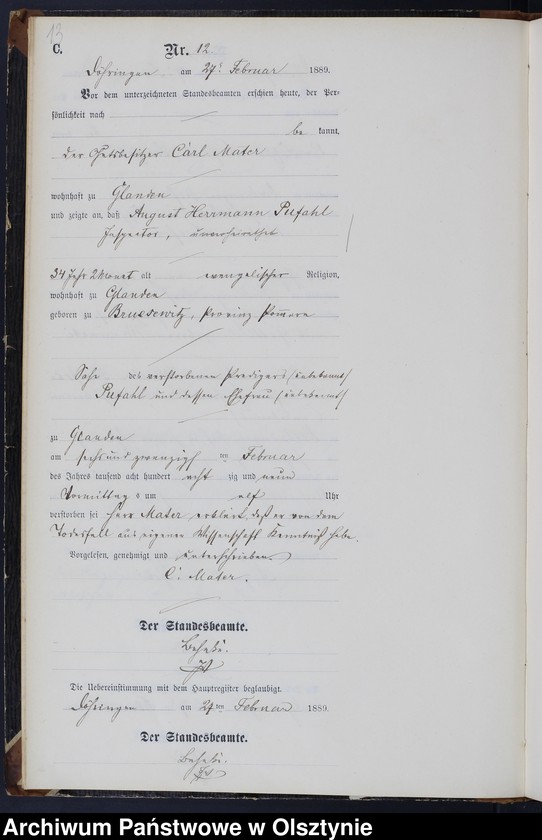 13
C.
Nr. 12
Döhringen am 27t Februar 1889.
Vor dem unterzeichneten Standesbeamten erschien heute, der Per-
sönlichkeit nach
be kannt,
der Gutsbesitzer Carl Mater
wohnhaft zu Glanden
und zeigte an, daß August Herrmann Pufahl
Inspector, unverheirathet
34 Jahr 2 Monat alt evangelischer Religion,
wohnhaft zu Glanden
geboren zu Bruesewitz, Provinz Pommern
Sohn des verstorbenen Predigers (unbekannt)
Pufahl und dessen Ehefrau (unbekannt)
zu Glanden
am sechsund zwanzigsten Februar
des Jahres tausend acht hundert acht zig und neun
Vormittag s um elf Uhr
verstorben sei Herr Mater erklärt, daß er von dem
Todesfall aus eigener Wissenschaft Kenntniß habe.
Vorgelesen, genehmigt und unterschrieben.
C. Mater.
Der Standesbeamte.
Die Uebereinstimmung mit dem Hauptregister beglaubigt.
Döhringen am 27ten Februar 1889.
Der Standesbeamte.
Archiwum Państwowe w Olsztynie